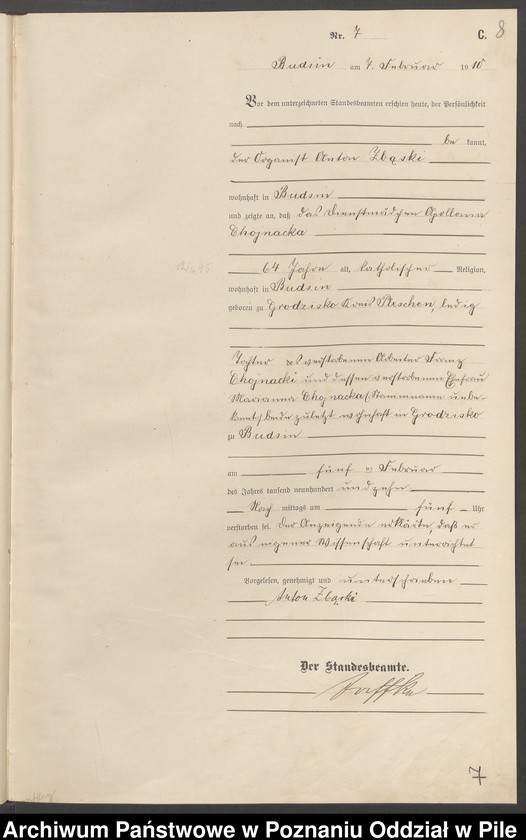 Nr. 7
C. 8
Budsin am 7. Februar 1910
Vor dem unterzeichneten Standesbeamten erschien heute, der Persönlichkeit
nach
be kannt,
der Organist Anton Zbąski
wohnhaft in Budsin
und zeigte an, daß das Dienstmädchen Apollonia
Chojnacka
64 Jahre alt, katholischer Religion,
wohnhaft in Budsin
geboren zu Grodzisko Kreis Pleschen, ledig
Tochter des verstorbenen Arbeiter Franz
Chojnacki und dessen verstorbenen Ehefrau
Marianna Chojnacka (Stammname unbe-
kannt) beide zuletzt wohnhaft in Grodzisko
zu Budsin
am fünf ten Februar
des Jahres tausend neunhundert und zehn
Nach mittags um fünf Uhr
verstorben sei. Der Anzeigende erklärte, daß er
aus eigener Wissenschaft unterrichtet
sei
Vorgelesen, genehmigt und unterschrieben
Anton Zbąski
Der Standesbeamte.
7
Archiwum Państwowe w Poznaniu Oddział w Pile